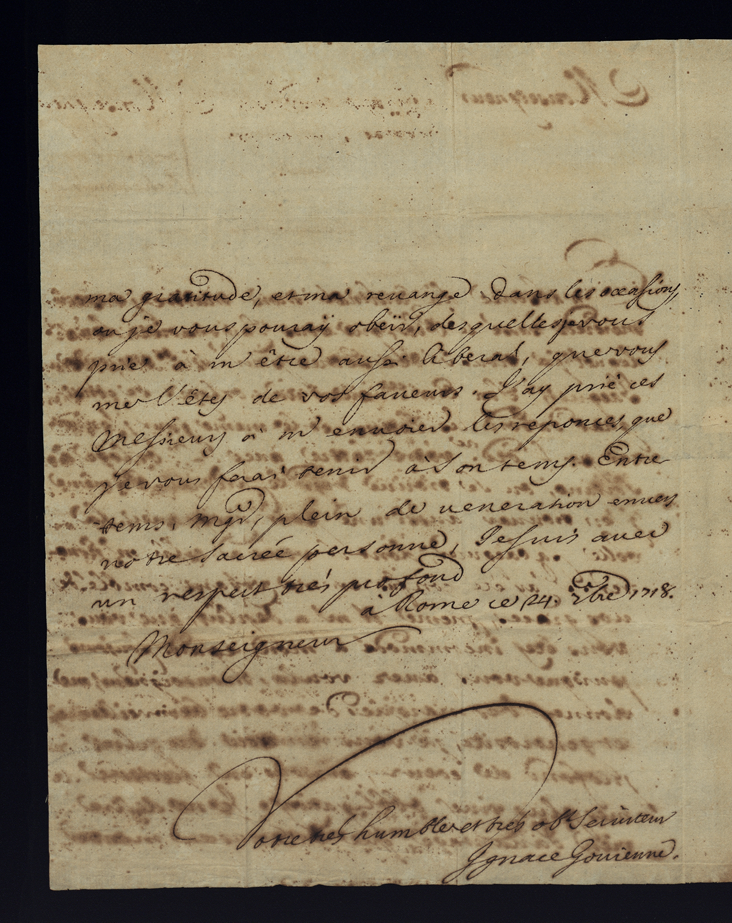 ma gratitude, et ma revange dans les occasions,
ou je vous pouraÿ obeïr, desquelles je vous
prie à m'être aussi liberal, que vous
me l'êtes de vos faveurs. J'ay prié ces
Messieurs à m'envoier les reponces, que
je vous ferai tenir à son tems. Entre
tems, Mgr, plein de veneration envers
votre sacrée personne, Je suis avec
un respect très profond
à Rome ce 24. Xbre 1718.
Monseigneur
Votre très humble et très obt. Serviteur
Ignace